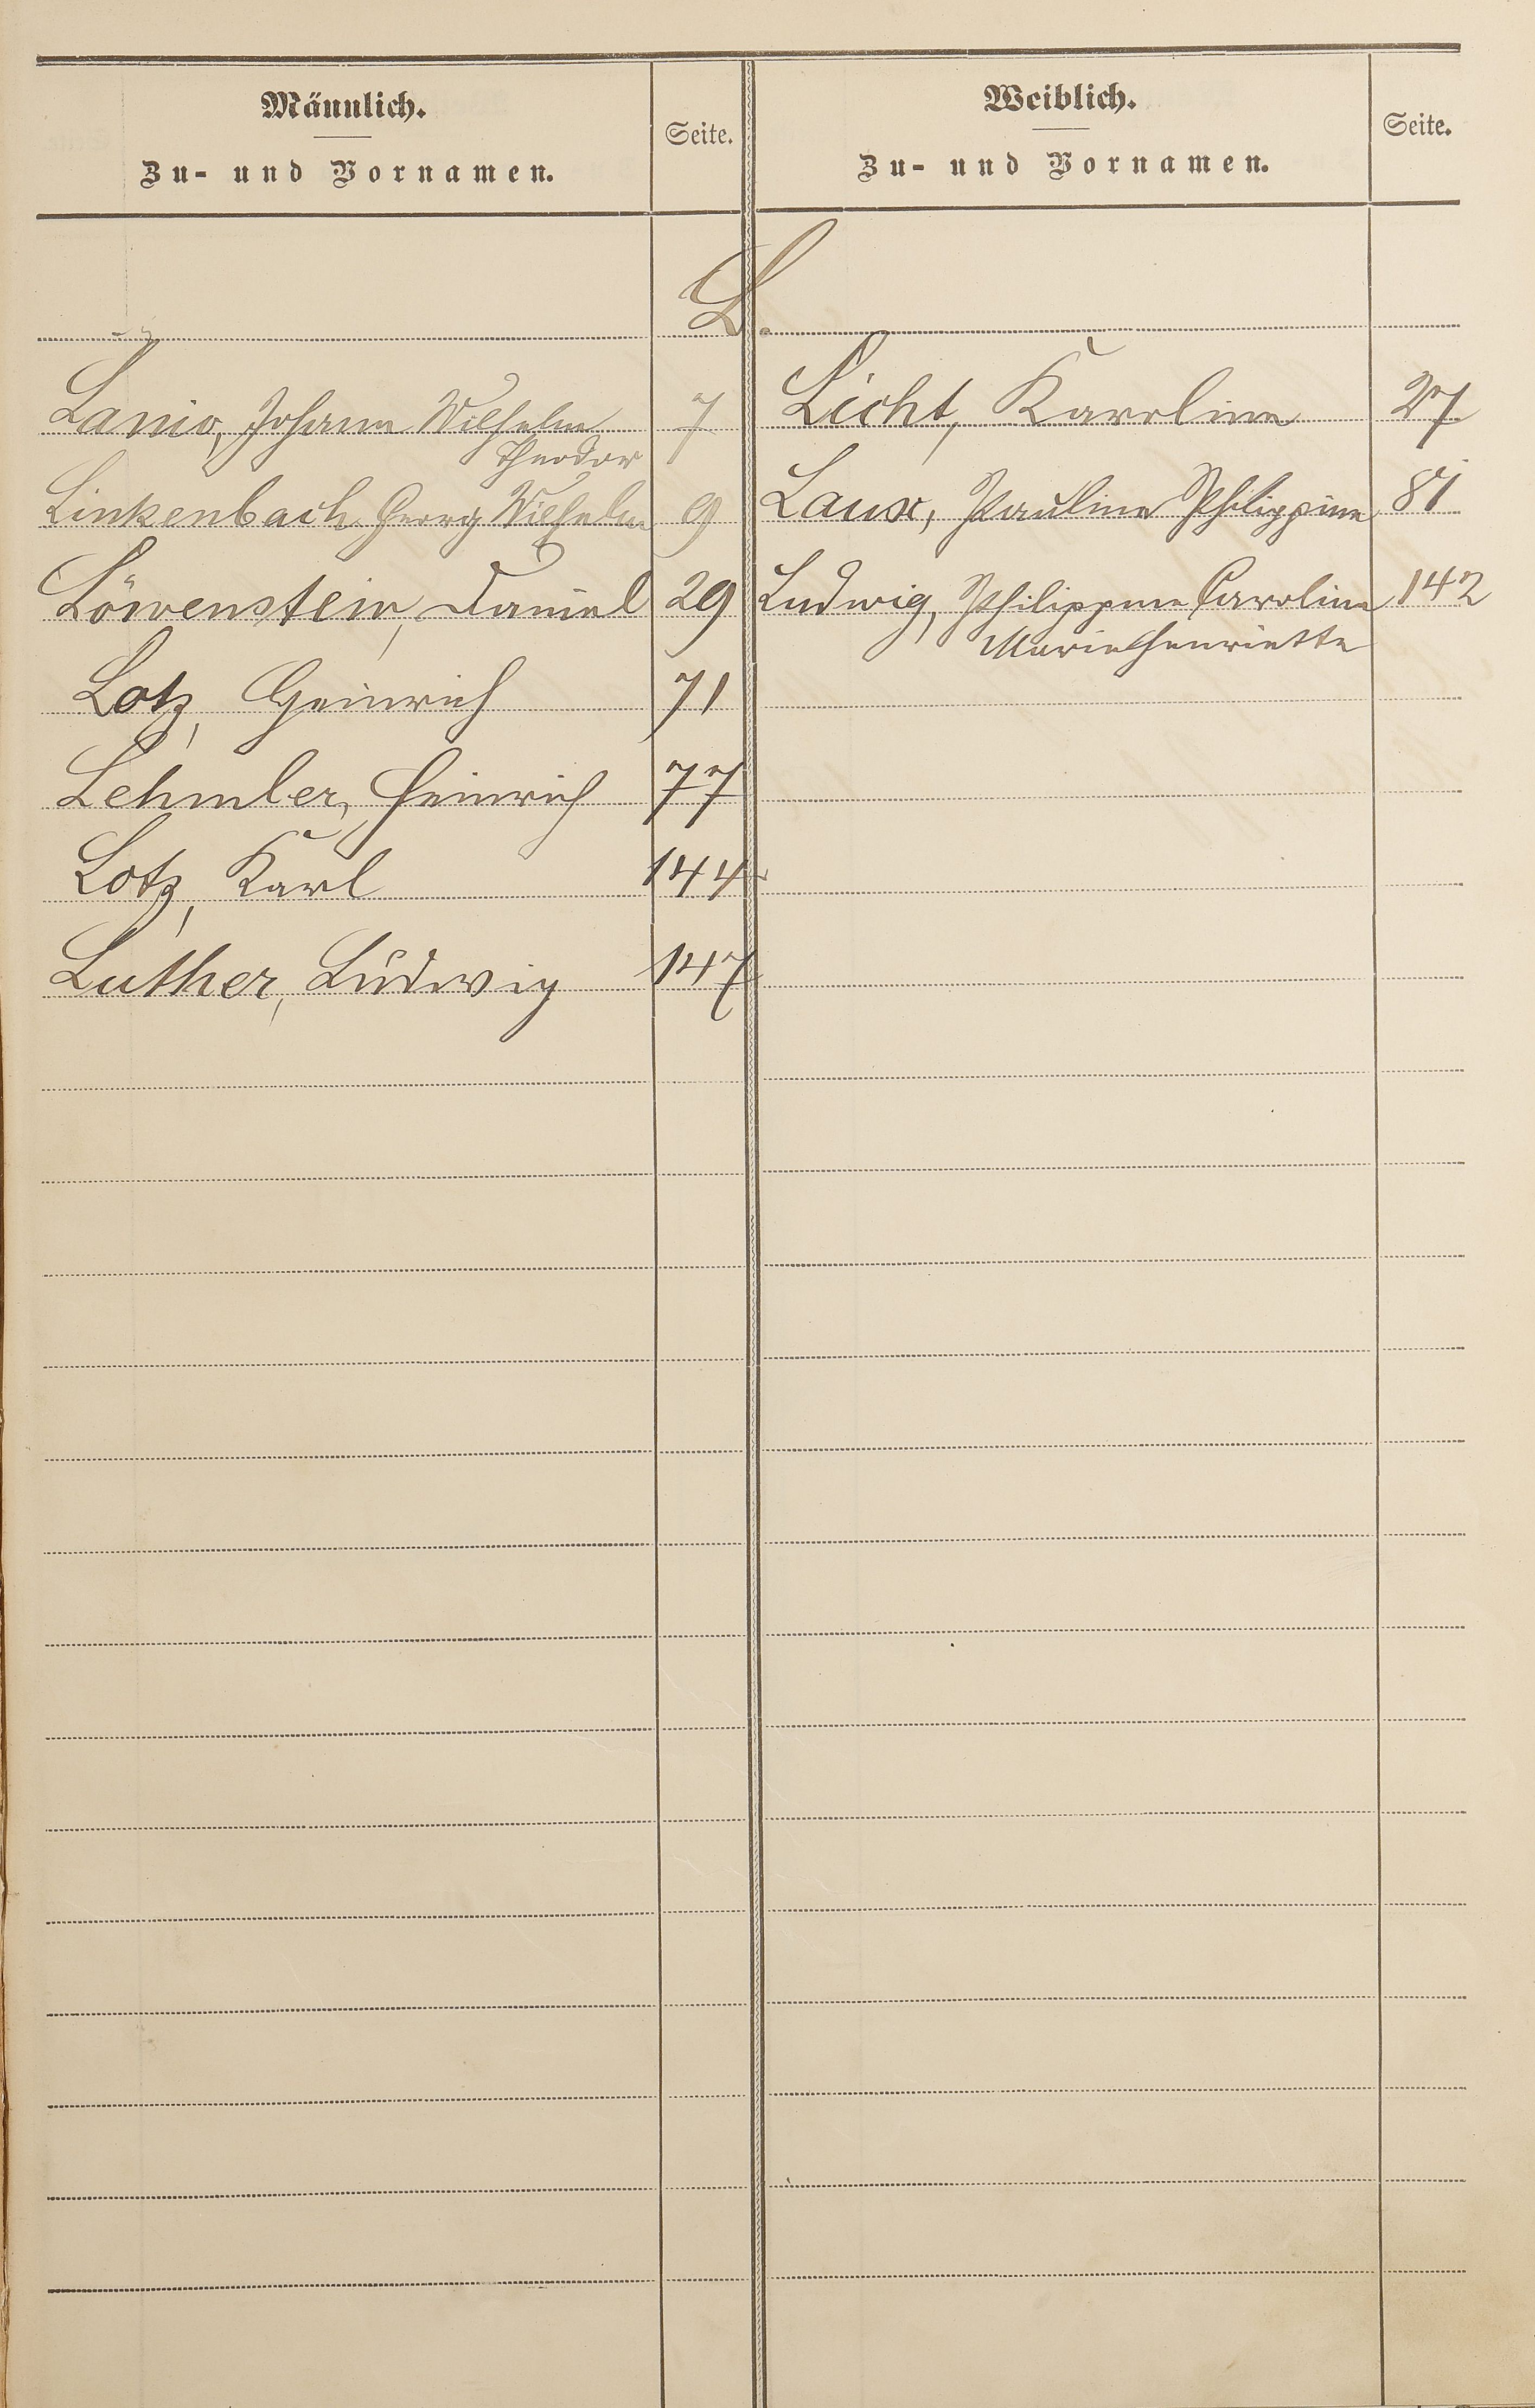 Männlich.
Zu- und Vornamen.
Seite.
Weiblich.
Zu- und Vornamen.
Seite.
L.
Lanio, Johann Wilhelm 7
Theodor
Linkenbach Georg Wilhelm 9
Löwenstein, Daniel 29
Lotz, Heinrich 71
Lehmler, Heinrich 77
Lotz, Karl 144
Luther, Ludwig 147
Licht, Karoline 27
Laux, Pauline Philippine 81
Ludwig, Philippine Caroline 142
Marie Henriette